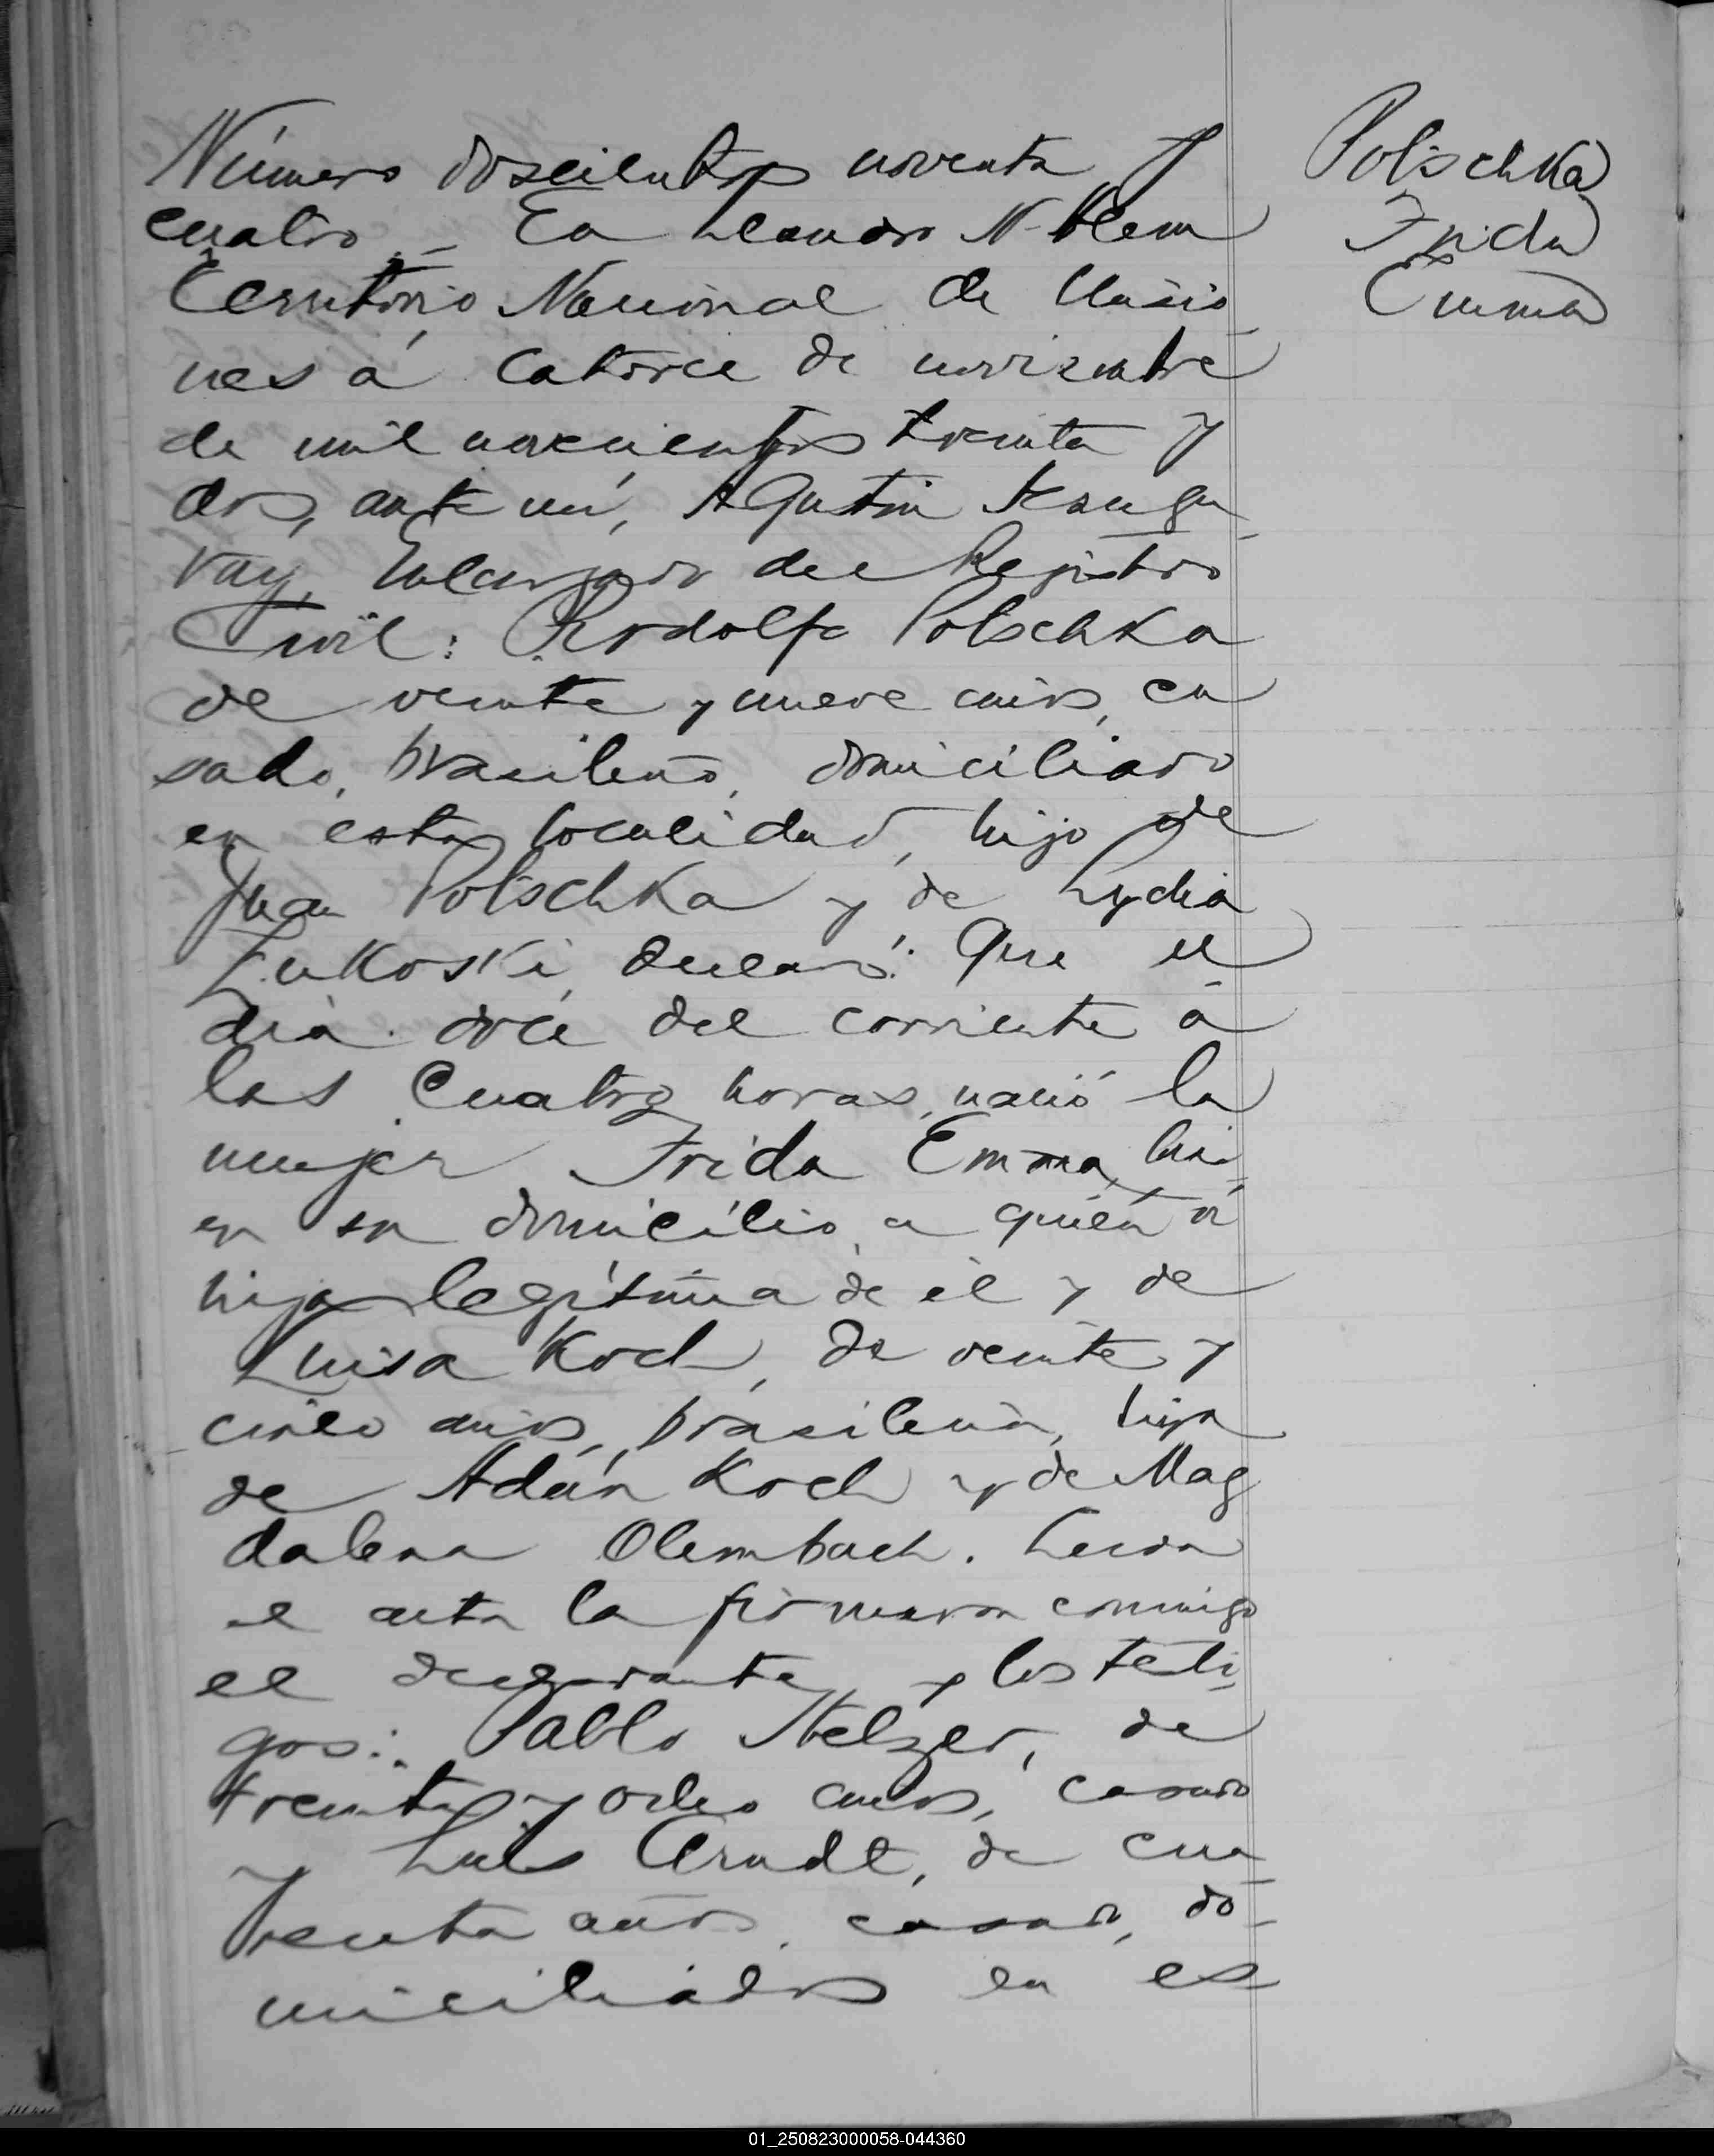 Número doscientos noventa y
cuatro.- En Leandro N. Alem
Territorio Nacional de Misio
nes á catorce de noviembre
de mil novecientos treinta y
dos, ante mí, Agustin
Encargado del Registro
Civil: Rodolfo Polschka
de veinte y nueve años, ca
sado, brasileño, domiciliado
en esta localidad, hijo de
Juan Polschka y de Lydia
Lukoski, declaró: Que el
dia doce del corriente á
las cuatro horas, nació la
mujer Frida Emma,
en su domicilio, a quién
hija legítima de él y de
Luisa Koch, de veinte y
cinco años, brasileña, hija
de Adán Koch y de Mag
dalena Olembach. Leida
el acta la firmaron conmigo
el declarante y los testi
gos: Pablo Stelzer, de
treinta y ocho años, casado
y Luis Arndt, de cua
renta años, casado, do-
miciliados en es
Polschka
Frida
Emma
01_250823000058-044360